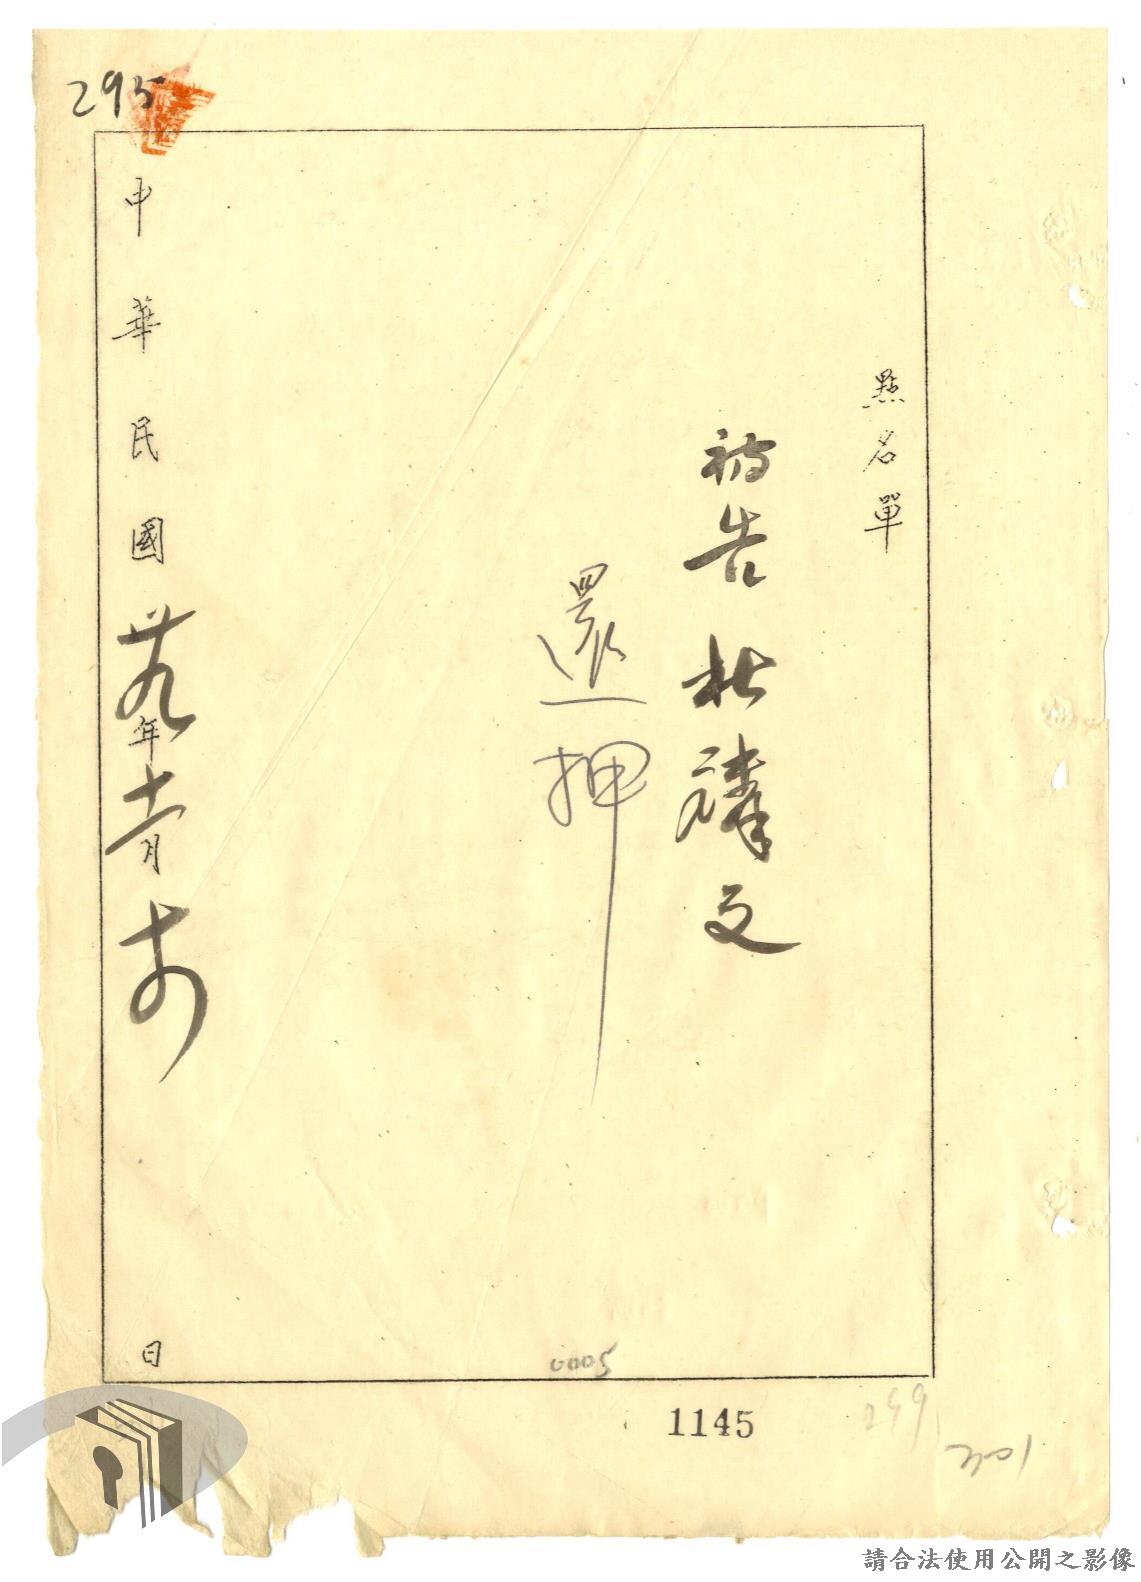 295
點名單
被告 杜麟文
還押
中華民國卅九年十一月十 日
0005
1145
299
301
請合法使用公開之影像